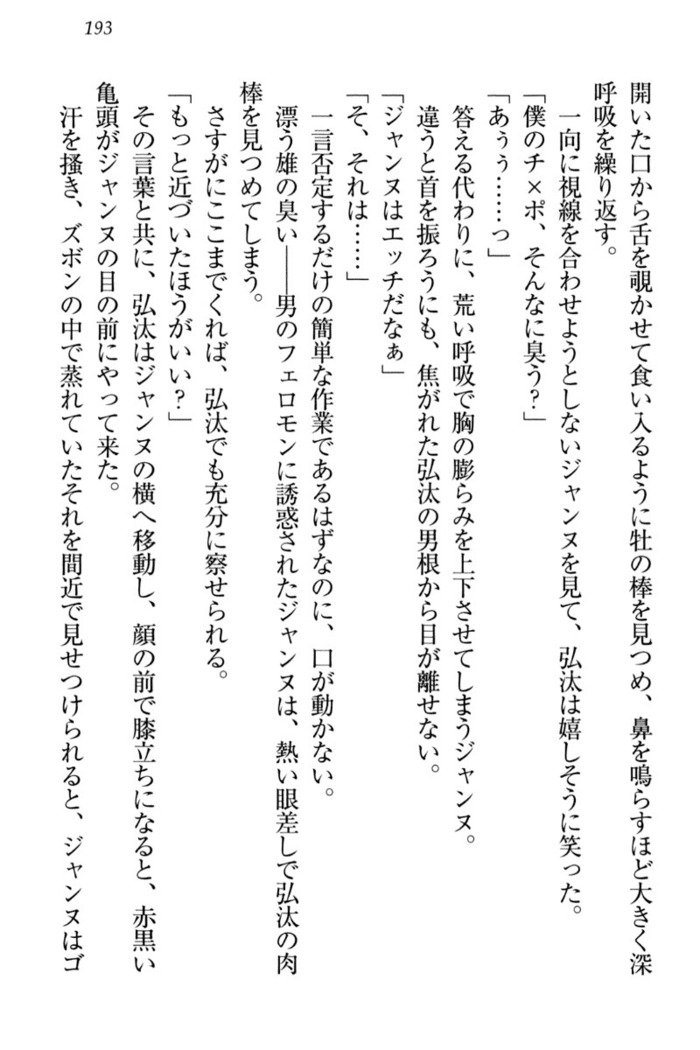 193
開いた口から舌を覗かせて食い入るように牡の棒を見つめ、鼻を鳴らすほど大きく深
呼吸を繰り返す。
一向に視線を合わせようとしないジャンヌを見て、弘汰は嬉しそうに笑った。
「僕のチ×ポ、そんなに臭う?」
「あぅぅ……っ」
答える代わりに、荒い呼吸で胸の膨らみを上下させてしまうジャンヌ。
違うと首を振ろうにも、焦がれた弘汰の男根から目が離せない。
「ジャンヌはエッチだなぁ」
「そ、それは……」
一言否定するだけの簡単な作業であるはずなのに、口が動かない。
漂う雄の臭い――男のフェロモンに誘惑されたジャンヌは、熱い眼差しで弘汰の肉
棒を見つめてしまう。
さすがにここまでくれば、弘汰でも充分に察せられる。
「もっと近づいたほうがいい?」
その言葉と共に、弘汰はジャンヌの横へ移動し、顔の前で膝立ちになると、赤黒い
亀頭がジャンヌの目の前にやって来た。
汗を掻き、ズボンの中で蒸れていたそれを間近で見せつけられると、ジャンヌはゴ